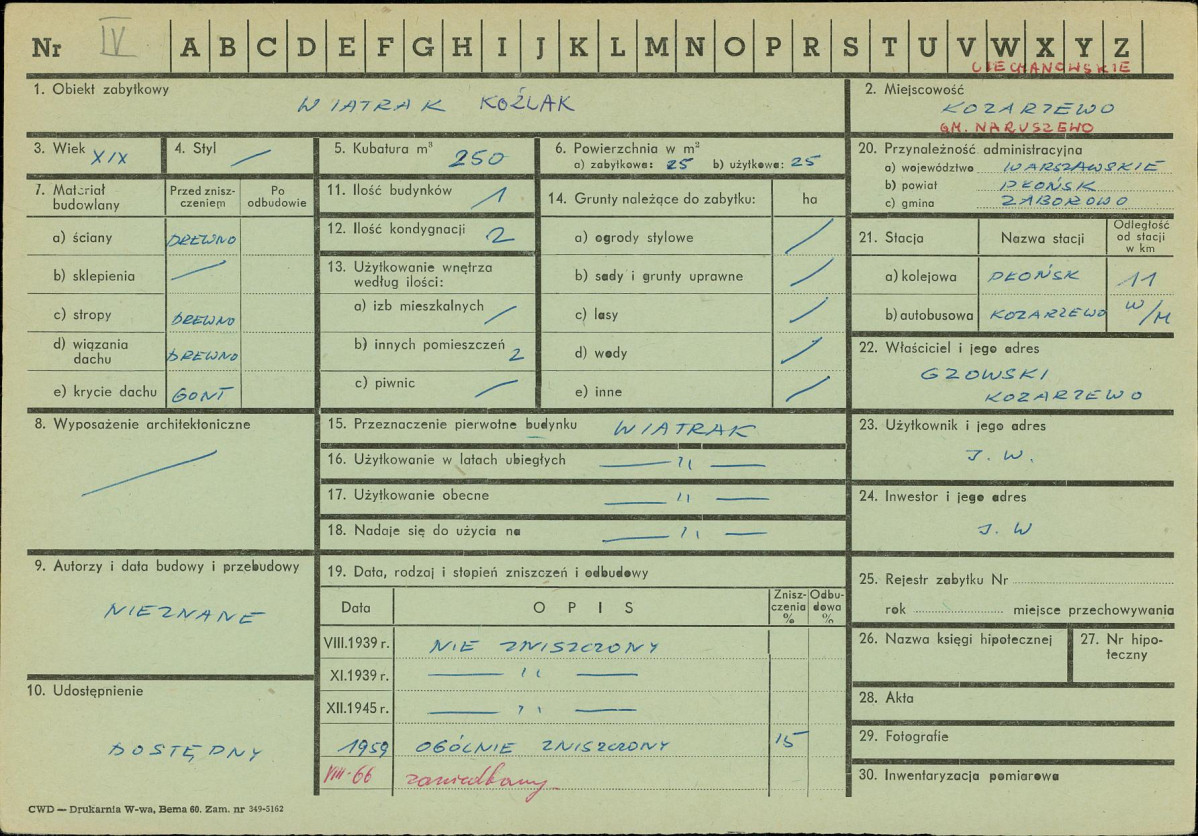 Nr IV A B C D E F G H I J K L M N O P R S T U V W X Y Z
CIECHANOWSKIE
1. Obiekt zabytkowy
WIATRAK KOŹLAK
2. Miejscowość
KOZARZEWO
GM. NARUSZEWO
3. Wiek XIX
4. Styl /
5. Kubatura m³ 250
6. Powierzchnia w m²
a) zabytkowa: 25 b) użytkowa: 25
7. Materiał budowlany
Przed zniszczeniem
Po odbudowie
a) ściany DREWNO
b) sklepienia /
c) stropy DREWNO
d) wiązania dachu DREWNO
e) krycie dachu GONT
8. Wyposażenie architektoniczne
/
9. Autorzy i data budowy i przebudowy
NIEZNANE
10. Udostępnienie
DOSTĘPNY
11. Ilość budynków 1
12. Ilość kondygnacji 2
13. Użytkowanie wnętrza
według ilości:
a) izb mieszkalnych /
b) innych pomieszczeń 2
c) piwnic /
14. Grunty należące do zabytku: ha
a) ogrody stylowe /
b) sady i grunty uprawne /
c) lasy /
d) wody /
e) inne /
15. Przeznaczenie pierwotne budynku WIATRAK
16. Użytkowanie w latach ubiegłych — " —
17. Użytkowanie obecne — " —
18. Nadaje się do użycia na — " —
19. Data, rodzaj i stopień zniszczeń i odbudowy
Data OPIS Zniszczenia % Odbudowa %
VIII.1939 r. NIE ZNISZCZONY
XI.1939 r. — " —
XII.1945 r. — " —
1959 OGÓLNIE ZNISZCZONY 15
VIII-66 zaniedbany
20. Przynależność administracyjna
a) województwo WARSZAWSKIE
b) powiat PŁOŃSK
c) gmina ZABOROWO
21. Stacja Nazwa stacji Odległość od stacji w km
a) kolejowa PŁOŃSK 11
b) autobusowa KOZARZEWO W/M
22. Właściciel i jego adres
GZOWSKI
KOZARZEWO
23. Użytkownik i jego adres
J. W.
24. Inwestor i jego adres
J. W
25. Rejestr zabytku Nr
rok miejsce przechowywania
26. Nazwa księgi hipotecznej
27. Nr hipoteczny
28. Akta
29. Fotografie
30. Inwentaryzacja pomiarowa
CWD — Drukarnia W-wa, Bema 60. Zam. nr 349-5162